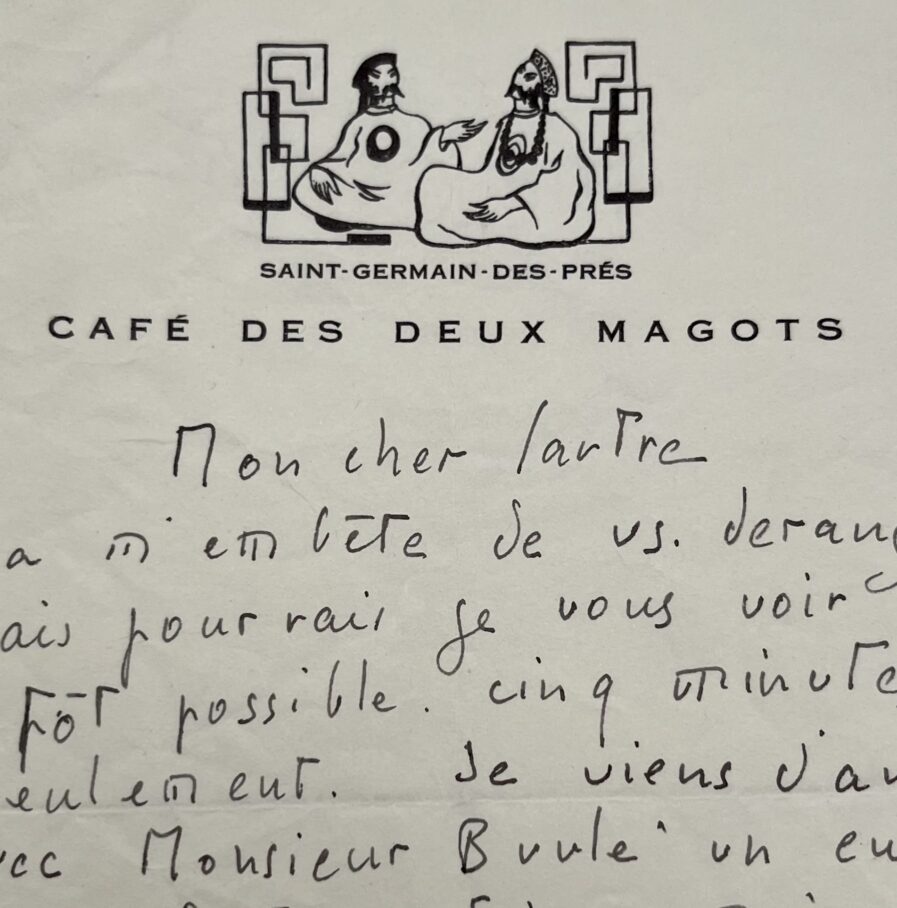 SAINT-GERMAIN-DES-PRÉS
CAFÉ DES DEUX MAGOTS
Mon cher Sartre
a m'embête de vs. déran
ais pourrais je vous voir
tôt possible. cinq minute
eulement. Je viens d'av
vec Monsieur un en